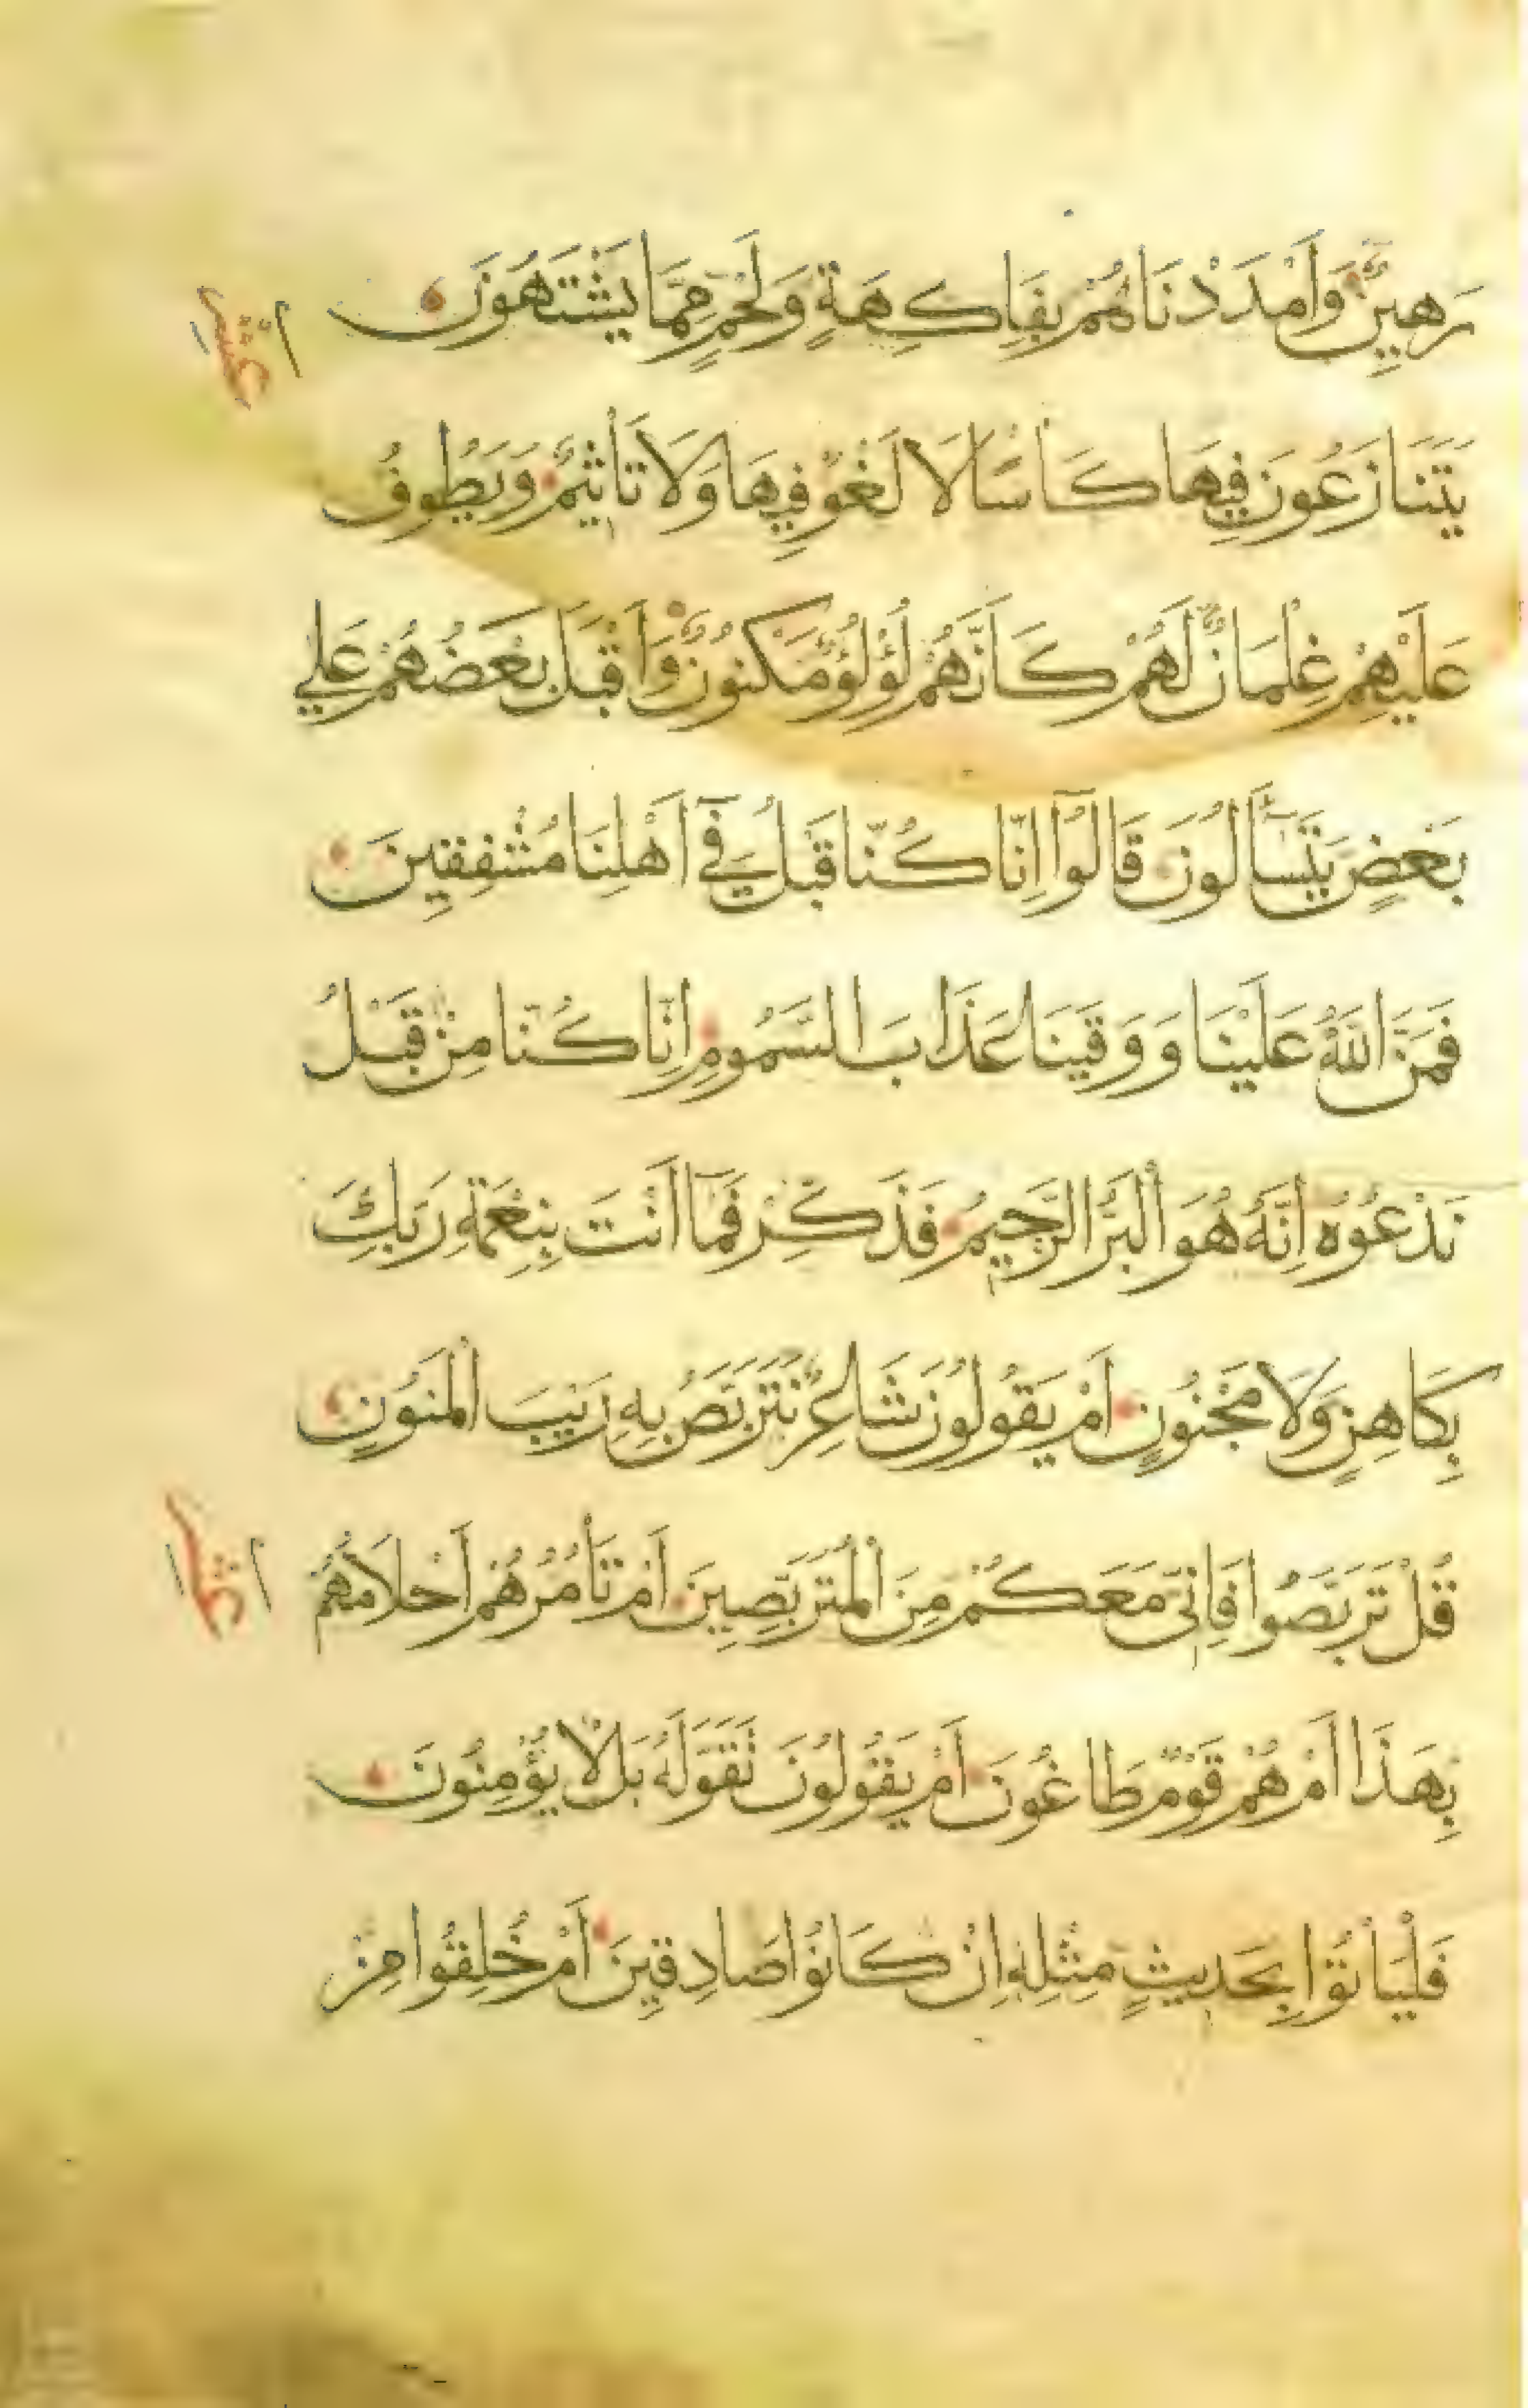 رَهِينٌ وَأَمْدَدْنَاهُمْ بِفَاكِهَةٍ وَلَحْمٍ مِمَّا يَشْتَهُونَ
عشر
يَتَنَازَعُونَ فِيهَا كَأْسًا لَا لَغْوٌ فِيهَا وَلَا تَأْثِيمٌ وَيَطُوفُ
عَلَيْهِمْ غِلْمَانٌ لَهُمْ كَأَنَّهُمْ لُؤْلُؤٌ مَكْنُونٌ وَأَقْبَلَ بَعْضُهُمْ عَلَي
بَعْضٍ يَتَسَآلُونَ قَالُوا إِنَّا كُنَّا قَبْلُ فِي أَهْلِنَا مُشْفِقِينَ
فَمَنَّ اللهُ عَلَيْنَا وَوَقَينَا عَذَابَ السَّمُومِ إِنَّا كُنَّا مِنْ قَبْلُ
نَدْعُوهُ إِنَّهُ هُوَ الْبَرُّ الرَّحِيمُ فَذَكِّرْ فَمَا أَنْتَ بِنِعْمَةِ رَبِّكَ
بِكَاهِنٍ وَلَا مَجْنُونٍ أَمْ يَقُولُونَ شَاعِرٌ نَتَرَبَّصُ بِهِ رَيْبَ الْمَنُونِ
قُلْ تَرَبَّصُوا فَإِنِّي مَعَكُمْ مِنَ الْمُتَرَبِّصِينَ أَمْ تَأْمُرُهُمْ أَحْلَامُهُمْ
بِهَذَا أَمْ هُمْ قَوْمٌ طَاغُونَ أَمْ يَقُولُونَ تَقَوَّلَهُ بَل لَّا يُؤْمِنُونَ
فَلْيَأْتُوا بِحَدِيثٍ مِثْلِهِ إِنْ كَانُوا صَادِقِينَ أَمْ خُلِقُوا مِنْ